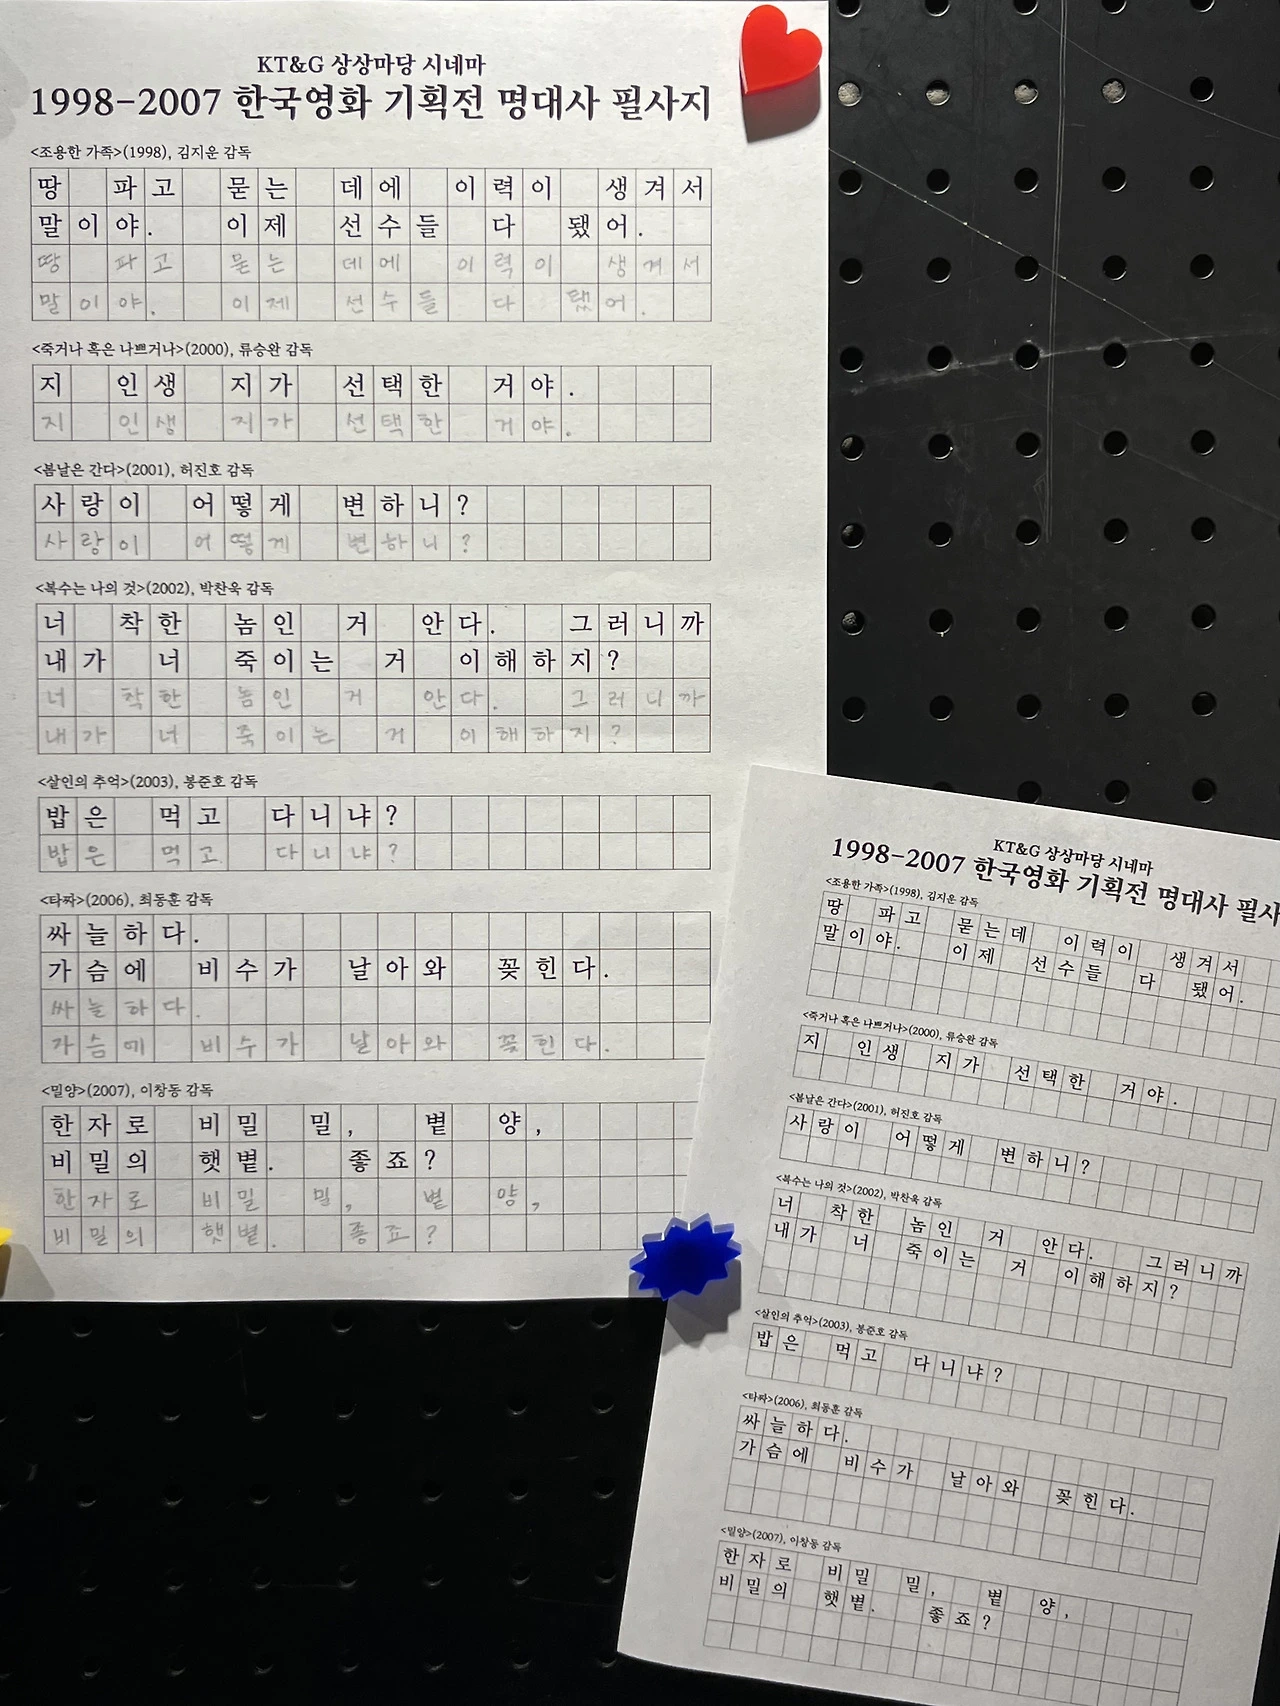 KT&G 상상마당 시네마
1998-2007 한국영화 기획전 명대사 필사지
<조용한 가족>(1998), 김지운 감독
땅 파고 묻는 데에 이력이 생겨서
말이야. 이제 선수들 다 됐어.
땅 파고 묻는 데에 이력이 생겨서
말이야. 이제 선수들 다 됐어.
<죽거나 혹은 나쁘거나>(2000), 류승완 감독
지 인생 지가 선택한 거야.
지 인생 지가 선택한 거야.
<봄날은 간다>(2001), 허진호 감독
사랑이 어떻게 변하니?
사랑이 어떻게 변하니?
<복수는 나의 것>(2002), 박찬욱 감독
너 착한 놈인 거 안다. 그러니까
내가 너 죽이는 거 이해하지?
너 착한 놈인 거 안다. 그러니까
내가 너 죽이는 거 이해하지?
<살인의 추억>(2003), 봉준호 감독
밥은 먹고 다니냐?
밥은 먹고 다니냐?
<타짜>(2006), 최동훈 감독
싸늘하다.
가슴에 비수가 날아와 꽂힌다.
싸늘하다.
가슴에 비수가 날아와 꽂힌다.
<밀양>(2007), 이창동 감독
한자로 비밀 밀, 볕 양,
비밀의 햇볕. 좋죠?
한자로 비밀 밀, 볕 양,
비밀의 햇볕. 좋죠?
KT&G 상상마당 시네마
1998-2007 한국영화 기획전 명대사 필사
<조용한 가족>(1998), 김지운 감독
땅 파고 묻는데 이력이 생겨서
말이야. 이제 선수들 다 됐어.
<죽거나 혹은 나쁘거나>(2000), 류승완 감독
지 인생 지가 선택한 거야.
<봄날은 간다>(2001), 허진호 감독
사랑이 어떻게 변하니?
<복수는 나의 것>(2002), 박찬욱 감독
너 착한 놈인 거 안다. 그러니까
내가 너 죽이는 거 이해하지?
<살인의 추억>(2003), 봉준호 감독
밥은 먹고 다니냐?
<타짜>(2006), 최동훈 감독
싸늘하다.
가슴에 비수가 날아와 꽂힌다.
<밀양>(2007), 이창동 감독
한자로 비밀 밀, 볕 양,
비밀의 햇볕. 좋죠?